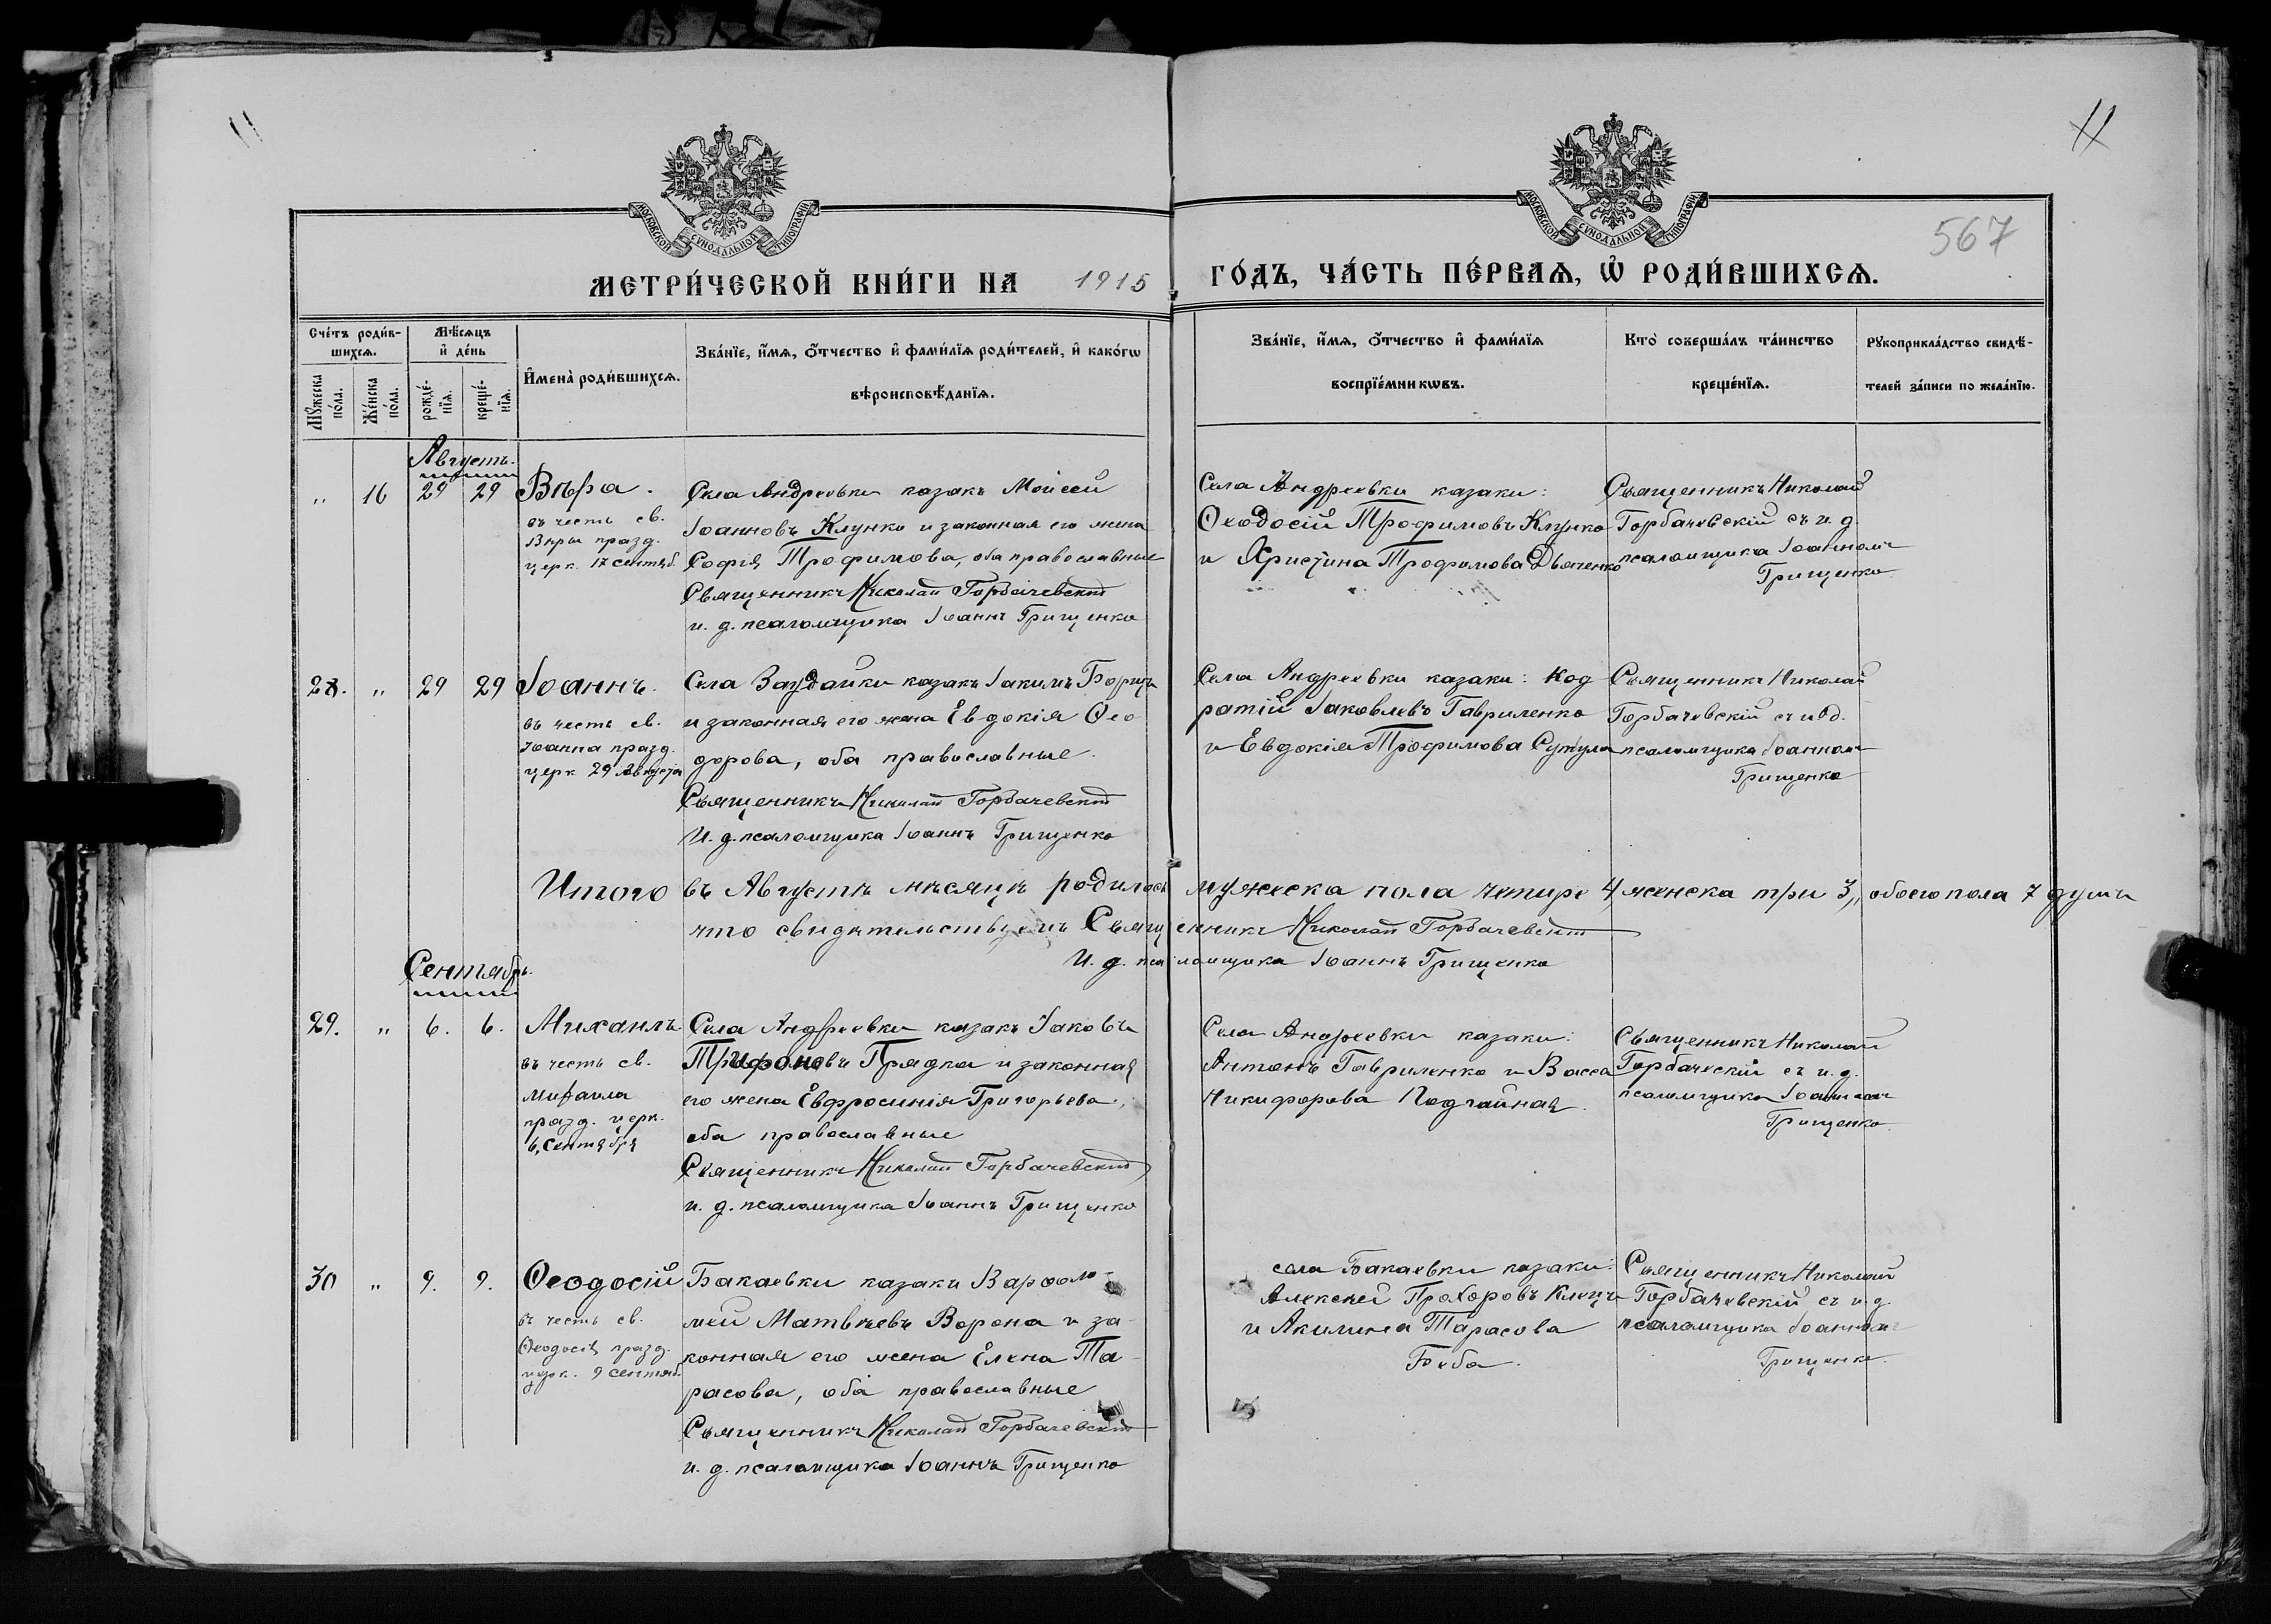 11
11
567
МОСКОВСКОЙ СѴНОДАЛЬНОЙ ТИПОГРАФІИ
МОСКОВСКОЙ СѴНОДАЛЬНОЙ ТИПОГРАФІИ
МЕТРИ́ЧЕСКОЙ КНИ́ГИ НА 1915 ГО́ДЪ, ЧА́СТЬ ПЕ́РВАѦ, Ѽ РОДИ́ВШИХСѦ.
Сче́тъ роди́в-
шихсѧ.
Мꙋ́жеска
по́ла.
Же́нска
по́ла.
Мѣ́сѧцъ
и҆ де́нь
рожде́-
нїѧ.
креще́-
нїѧ.
И҆мена̀ роди́вшихсѧ.
Зва́нїе, и҆́мѧ, ѻ҆́тчество и҆ фами́лїѧ роди́телей, и҆ како́гѡ
вѣроисповѣ́данїѧ.
Зва́нїе, и҆́мѧ, ѻ҆́тчество и҆ фами́лїѧ
воспрїе́мникѡвъ.
Кто̀ соверша́лъ та́инство
креще́нїѧ.
Рꙋкоприкла́дство свидѣ́-
телей за́писи по жела́нїю.
Августъ.
„ 16 29 29 Вѣра.
въ честь св.
Вѣры празд.
церк. 17 сентяб.
Села Андреевки казакъ Моисей
Іоанновъ Клунко и законная его жена
Софія Трофимова, оба православные
Священникъ Николай Горбачевскій
и. д. псаломщика Іоаннъ Грищенко
Села Андреевки казаки:
Ѳеодосій Трофимовъ Клунко
и Христина Трофимова Дьяченко
Священникъ Николай
Горбачевскій съ и. д.
псаломщика Іоанномъ
Грищенко
28. „ 29 29 Іоаннъ.
въ честь св.
Іоанна празд.
церк. 29 Августа
Села казакъ Іакимъ
и законная его жена Евдокія Ѳео
дорова, оба православные.
Священникъ Николай Горбачевскій
И. д. псаломщика Іоаннъ Грищенко
Села Андреевки казаки: Код
ратій Іаковлевъ Гавриленко
и Евдокія Трофимова Сутула
Священникъ Николай
Горбачевскій съ и. д.
псаломщика Іоанномъ
Грищенко
Итого въ Августѣ мѣсяцѣ родилось мужеска пола четыре 4, женска три 3, обоего пола 7 душъ
что свидѣтельствуемъ Священникъ Николай Горбачевскій
И. д. псаломщика Іоаннъ Грищенко
Сентябрь.
29. „ 6. 6. Михаилъ.
въ честь св.
Михаила
празд. церк.
6, Сентября
Села Андреевки казакъ Іаковъ
Трифоновъ Прядка и законная
его жена Евфросинія Григорьева,
оба православные
Священникъ Николай Горбачевскій
и. д. псаломщика Іоаннъ Грищенко
Села Андреевки казаки:
Антонъ Гавриленко и Васса
Никифорова Подгайная.
Священникъ Николай
Горбаческій съ и. д.
псаломщика Іоанномъ
Грищенко.
30 „ 9. 9. Ѳеодосій
въ честь св.
Ѳеодосія празд.
церк. 9 сентяб.
Бакаевки казакъ Варѳоло-
мей Матвѣевъ Ворона и за-
конная его жена Елена Та-
расова, оба православные
Священникъ Николай Горбачевскій
и. д. псаломщика Іоаннъ Грищенко
села Бакаевки казаки:
Алексѣй Прохоровъ
и Акилина Тарасова
Священникъ Николай
Горбачевскій съ и. д.
псаломщика Іоанномъ
Грищенко.